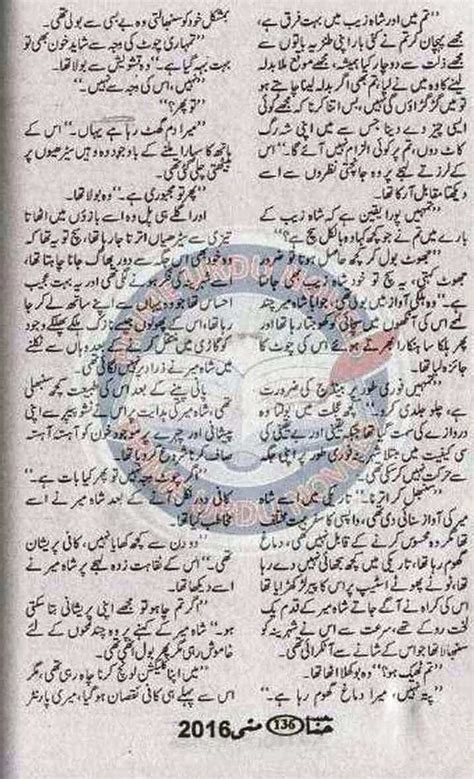 "تم میں اور شاہ زیب میں بہت فرق ہے،
مجھے پہچان کر تم نے کئی بار اپنی طنزیہ باتوں سے
مجھے ذلت سے دوچار کیا ہے، مجھے موقع ملا بدلہ
لینے کا وہ میں نے لیا، تم بھی اگر بدلہ لینا چاہتے ہو
تو میں گڑگڑاؤں گا نہیں، بس اتنا کرنا کہ مجھے کوئی
ایسی چیز دے دینا جس سے میں اپنی شہ رگ
کاٹ دوں، تم پر کوئی الزام نہیں آئے گا۔" اس
کے لرزتے لہجے پر وہ جانچتی نظروں سے اسے
دیکھتا مقابل آ رکا تھا۔
"تمہیں پورا یقین ہے کہ شاہ زیب کے
بارے میں تم نے جو کچھ کہا وہ بالکل سچ ہے؟"
"جھوٹ بول کر مجھے حاصل ہوتا تو ضرور
جھوٹ کہتی، یہ سچ ہے تو خود شاہ زیب بھی جانتا
ہے۔" وہ بھیگی آواز میں بولی تھی، جواباً شاہ میر چند
لمحے اس کی آنکھوں میں سچائی کو کھوجتا رہا تھا اور
پھر ہلکا سا ہنکارا بھرتے ہوئے اس کی چوٹ کا
جائزہ لیا تھا۔
"تمہیں فوری طور پر بینڈیج کی ضرورت
ہے، چلو جلدی کرو۔" کچھ عجلت میں بولتا وہ
دروازے کی سمت بڑھا تھا جبکہ یقینی اور بے یقینی کی
سی کیفیت میں شہرینہ فوری طور پر اپنی جگہ سے
حرکت نہیں کر سکی تھی۔
"سنبھل کر اترنا۔" تاریکی میں اسے شاہ
میر کی آواز سنائی دی تھی، واپسی کا سفر بہت مختلف
تھا مگر وہ محسوس کرنے کے قابل نہیں تھی، دماغ
گھوم رہا تھا، تاریکی میں کچھ سجھائی نہیں دے رہا
تھا، ٹوٹے ہوئے اسٹیپ پر اس کا پیر لڑکھڑایا تھا
اس کی کراہ نے آگے جاتے شاہ میر کے قدم یک
لخت روک دیے تھے، سرعت سے اس نے شہرینہ کو
سنبھالا تھا جو اس کے شانے سے آ ٹکرائی تھی۔
"تم ٹھیک ہو؟" وہ بوکھلا اٹھا تھا۔
"پتہ نہیں، میرا دماغ گھوم رہا ہے۔"
بمشکل خود کو سنبھالتی وہ بے بسی سے بولی تھی۔
"تمہاری چوٹ کی وجہ سے شاید خون بھی تو
بہت بہہ گیا ہے۔" وہ تشویش سے بولا تھا۔
"نہیں، اس کی وجہ سے نہیں۔"
"تو پھر؟"
"میرا دم گھٹ رہا ہے یہاں۔" اس کے
ہاتھ کا سہارا ملنے کے باوجود وہ وہیں سیڑھیوں پر
بیٹھتی چلی گئی تھی۔
"پھر تو مجبوری ہے۔" وہ بولا تھا۔
اور اگلے ہی پل وہ اسے بازوؤں میں اٹھاتا
تیزی سے سیڑھیاں اترتا جا رہا تھا، سچ تو یہ تھا کہ
وہ خود بھی اس جگہ سے دور بھاگ جانا چاہتا تھا،
اسے شہرینہ کی فکر ہونے لگی تھی اور یہ بہت عجیب
احساس تھا جو وہ یہاں سے اپنے ساتھ لے کر جا
رہا تھا، اس کے پھولوں جیسے نازک ہلکے پھلکے وجود
کو گاڑی میں منتقل کرنے کے بعد وہاں سے نکلنے
میں شاہ میر نے ذرا دیر نہیں لگائی تھی۔
پانی پینے کے بعد اس کی طبیعت کچھ سنبھلی
تھی، شاہ میر کی ہدایت پر اس نے ٹشو پیپر سے اپنی
پیشانی اور چہرے پر موجود خون کو آہستہ آہستہ
صاف کرنا شروع کر دیا تھا۔
"اگر چوٹ وجہ نہیں تو پھر کیا بات ہے۔"
کافی دور نکل آنے کے بعد شاہ میر نے اسے
مخاطب کیا تھا۔
"دو دن سے کچھ کھایا نہیں، کافی پریشان
تھی۔" اس کے نقاہت زدہ لہجے پر شاہ میر نے
اسے دیکھا تھا۔
"اگر تم چاہو تو مجھے اپنی پریشانی بتا سکتی
ہو۔" شاہ میر کے کہنے پر وہ چند لمحوں کے لئے
خاموش رہی تھی پھر بول اٹھی تھی۔
"میں اپنا کلیکشن لانچ کرنا چاہ رہی تھی، مگر
اس سے پہلے ہی کافی نقصان ہو گیا، میری پارٹنر
حنا 136 مئی 2016